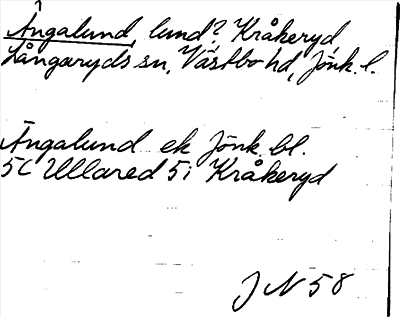 Ängalund, lund? Kråkeryd,
Långaryds sn, Västbo hd, Jönk. l.
Ängalund ek Jönk. bl.
5C Ullared 5i Kråkeryd
J N 58